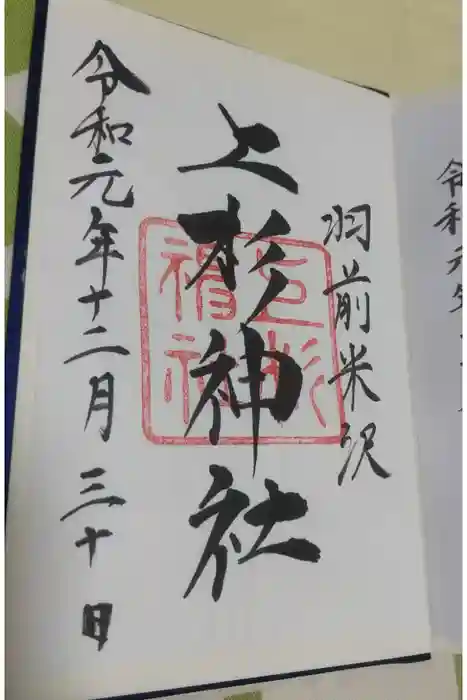 令和元年
羽前米沢
上杉神社
令和元年十二月三十日
上杉神社